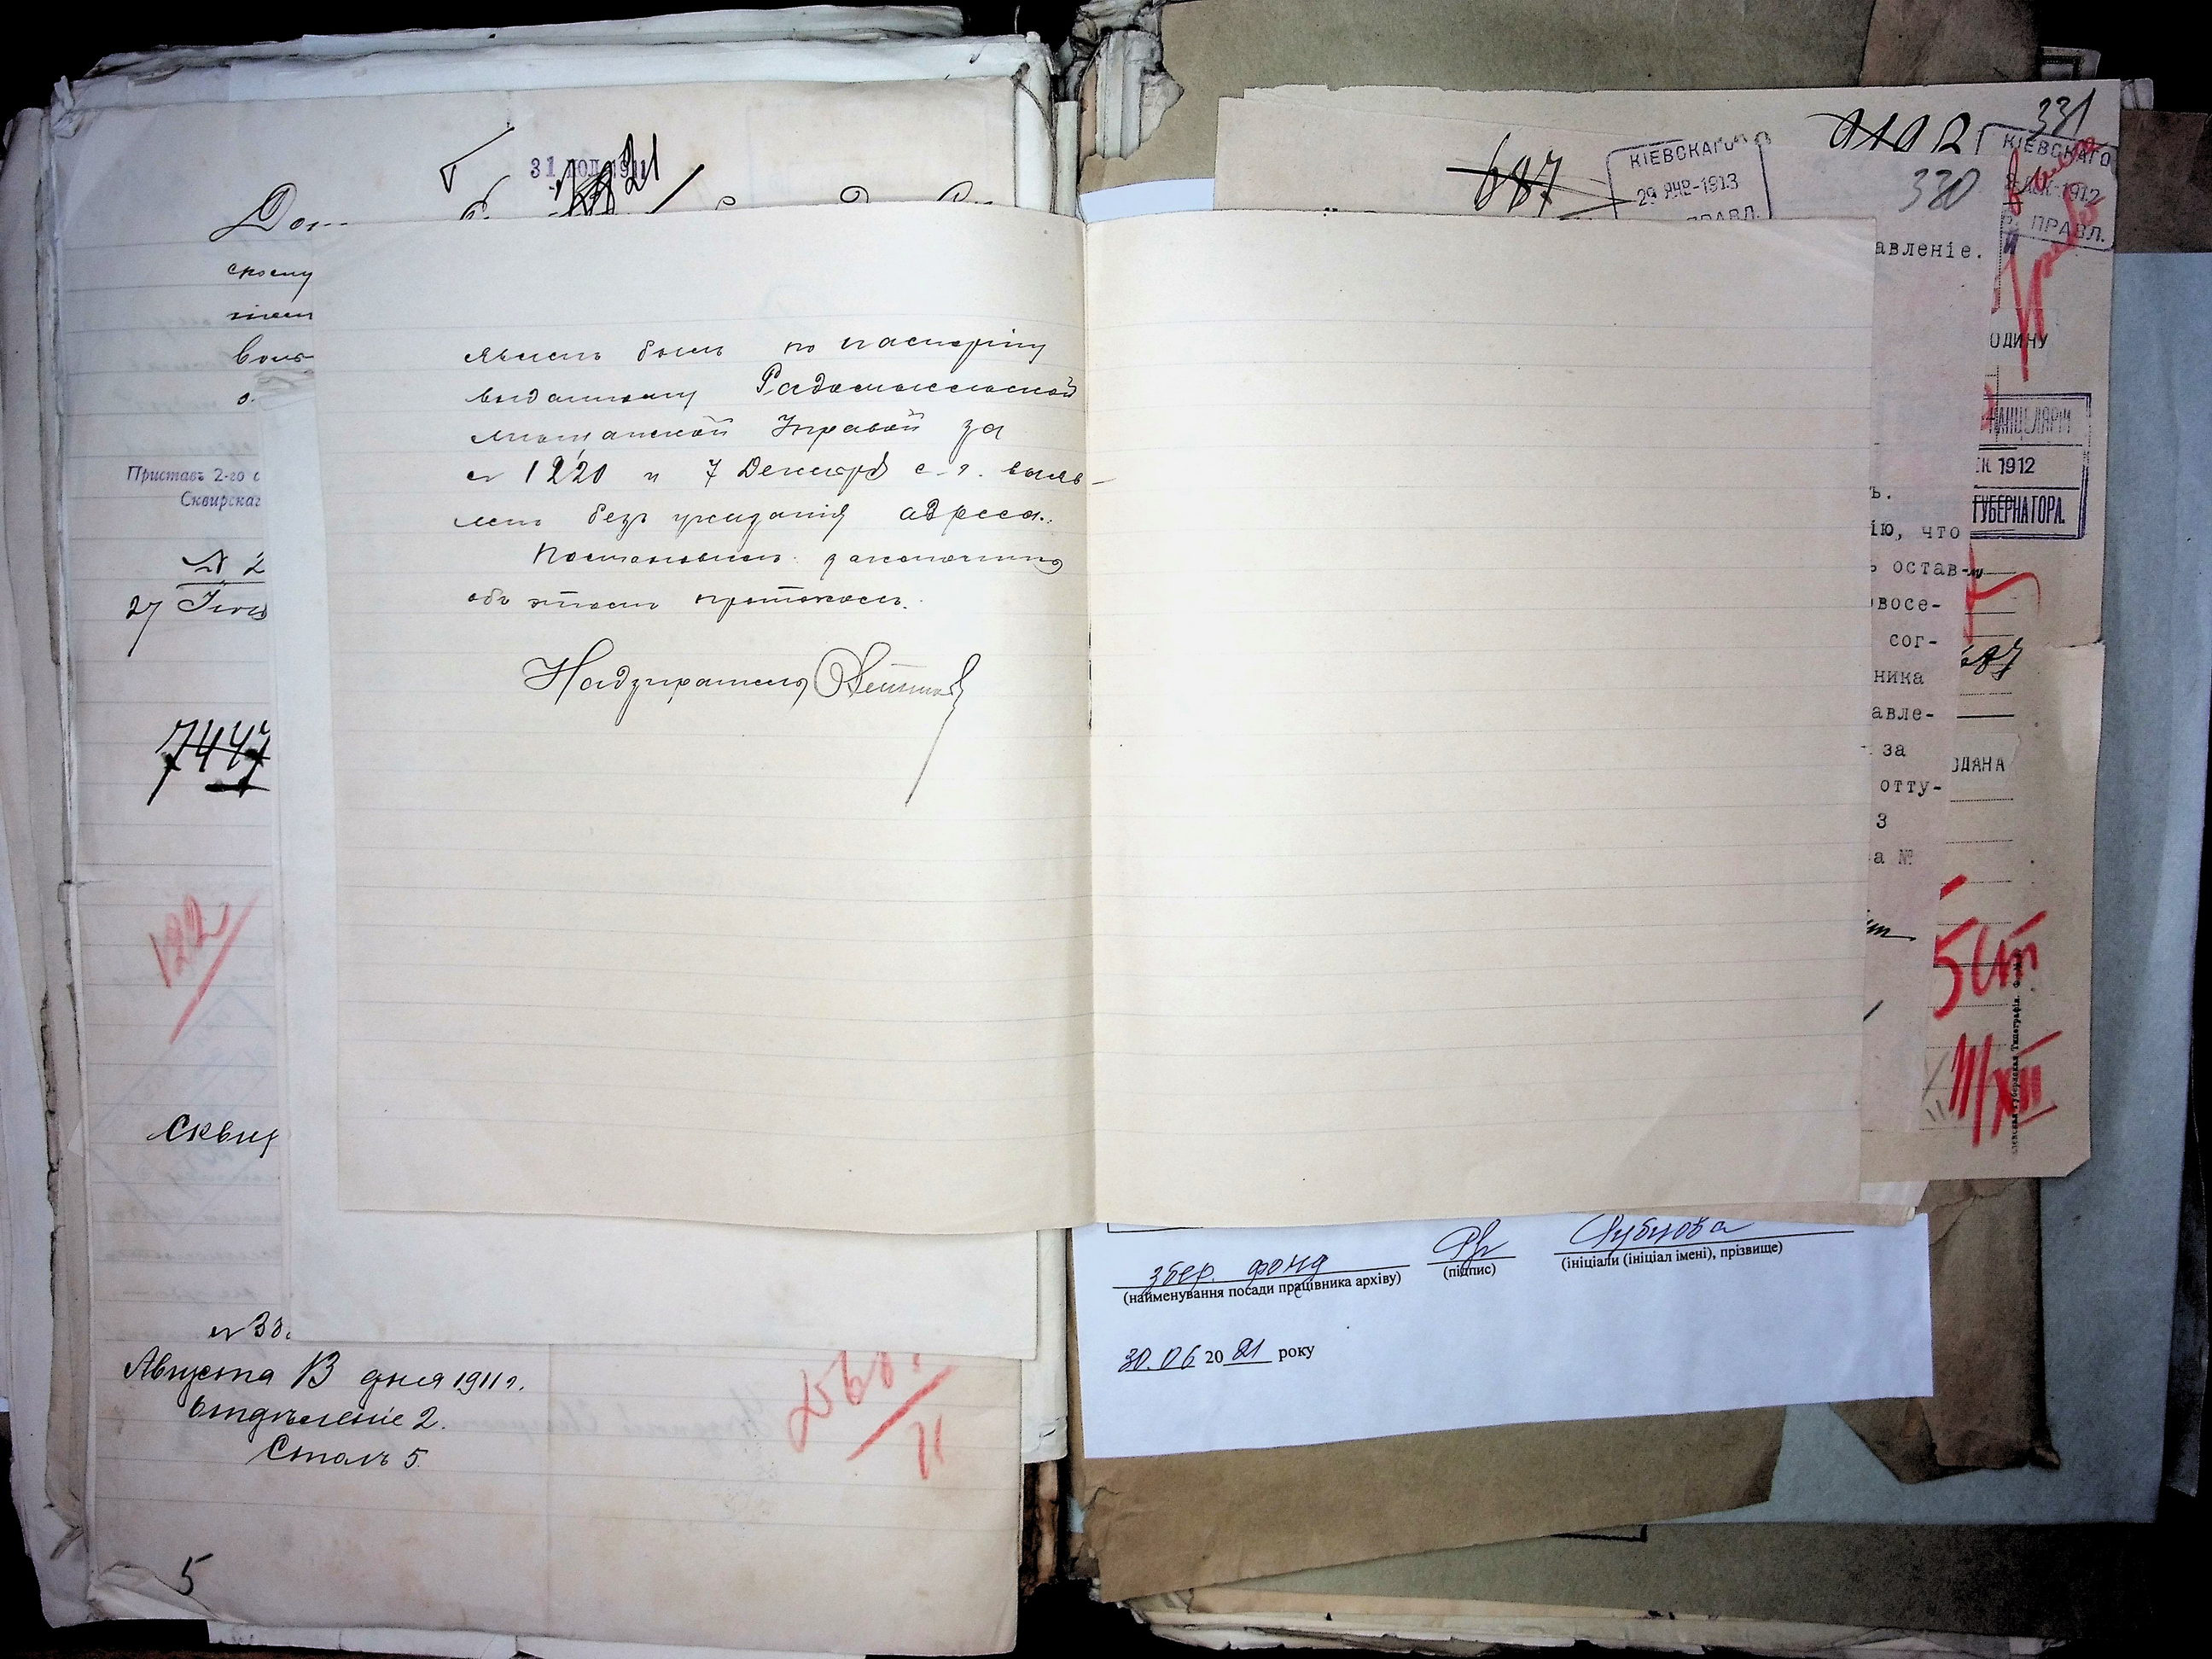 31 1911
21
скому
Приставъ 2-го с
Сквирскаг
№ 2
27
7447
122
Сквир
Августа 13 дня 1911 г.
Отдѣленіе 2.
Столъ 5.
5
явленъ былъ по паспорту
выданному Радомысльской
мѣщанской Управой за
№ 1220 и 7 Декабря с. г. выяв-
ленъ безъ указанія адреса.
Постановилъ: заключить
объ этомъ протоколъ.
Надзиратель
687
КІЕВСКАГО
29 ЯНВ-1913
ПРАВЛ.
331
330
КІЕВСКАГО
1912
ПРАВЛ.
авленіе.
ОДИНУ
КАНЦЕЛЯРІИ
ЕК 1912
ГУБЕРНАТОРА.
ъ.
ію, что
ь остав-
восе-
сог-
ника
авле-
за
ОДАНА
отту-
3
а №
5 ст
III/XII
збер. фонд
(найменування посади працівника архіву)
(підпис)
(ініціали (ініціал імені), прізвище)
30.06 2021 року